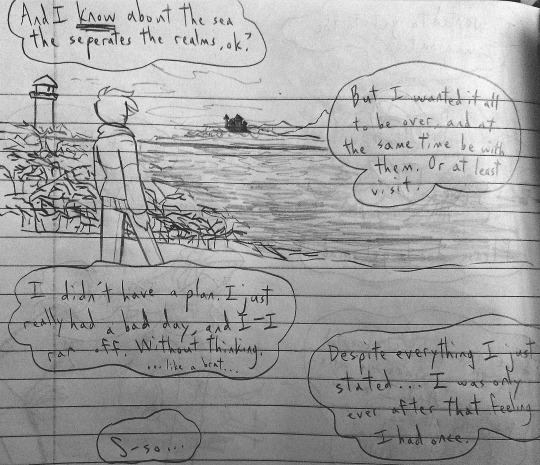 And I know about the sea
the seperates the realms, ok?
But I wanted it all
to be over, and at
the same time be with
them. Or at least
visit.
I didn't have a plan. I just
really had a bad day, and I-I
ran off. Without thinking.
...like a brat...
Despite everything I just
stated... I was only
ever after that feeling
I had once.
S-so...